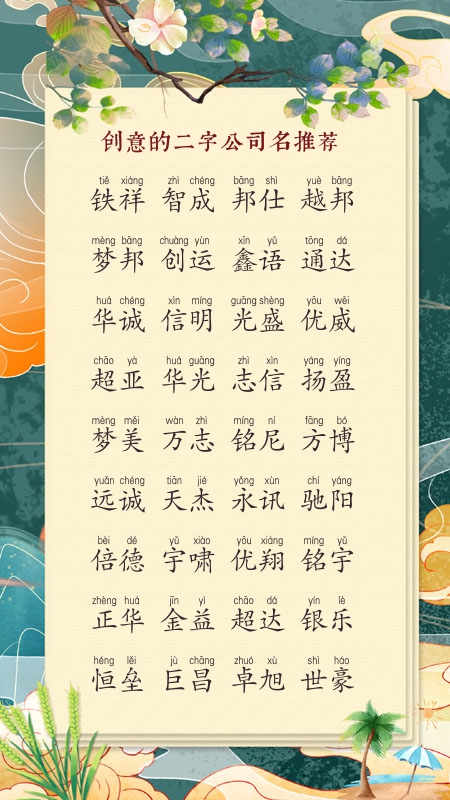 创意的二字公司名推荐
tiě xiáng zhì chéng bāng shì yuè bāng
铁祥 智成 邦仕 越邦
mèng bāng chuàng yùn xīn yǔ tōng dá
梦邦 创运 鑫语 通达
huá chéng xìn míng guāng shèng yōu wēi
华诚 信明 光盛 优威
chāo yà huá guāng zhì xìn yáng yíng
超亚 华光 志信 扬盈
mèng měi wàn zhì míng ní fāng bó
梦美 万志 铭尼 方博
yuǎn chéng tiān jié yǒng xùn chí yáng
远诚 天杰 永讯 驰阳
bèi dé yǔ xiào yōu xiáng míng yǔ
倍德 宇啸 优翔 铭宇
zhèng huá jīn yì chāo dá yín lè
正华 金益 超达 银乐
héng lěi jù chāng zhuó xù shì háo
恒垒 巨昌 卓旭 世豪